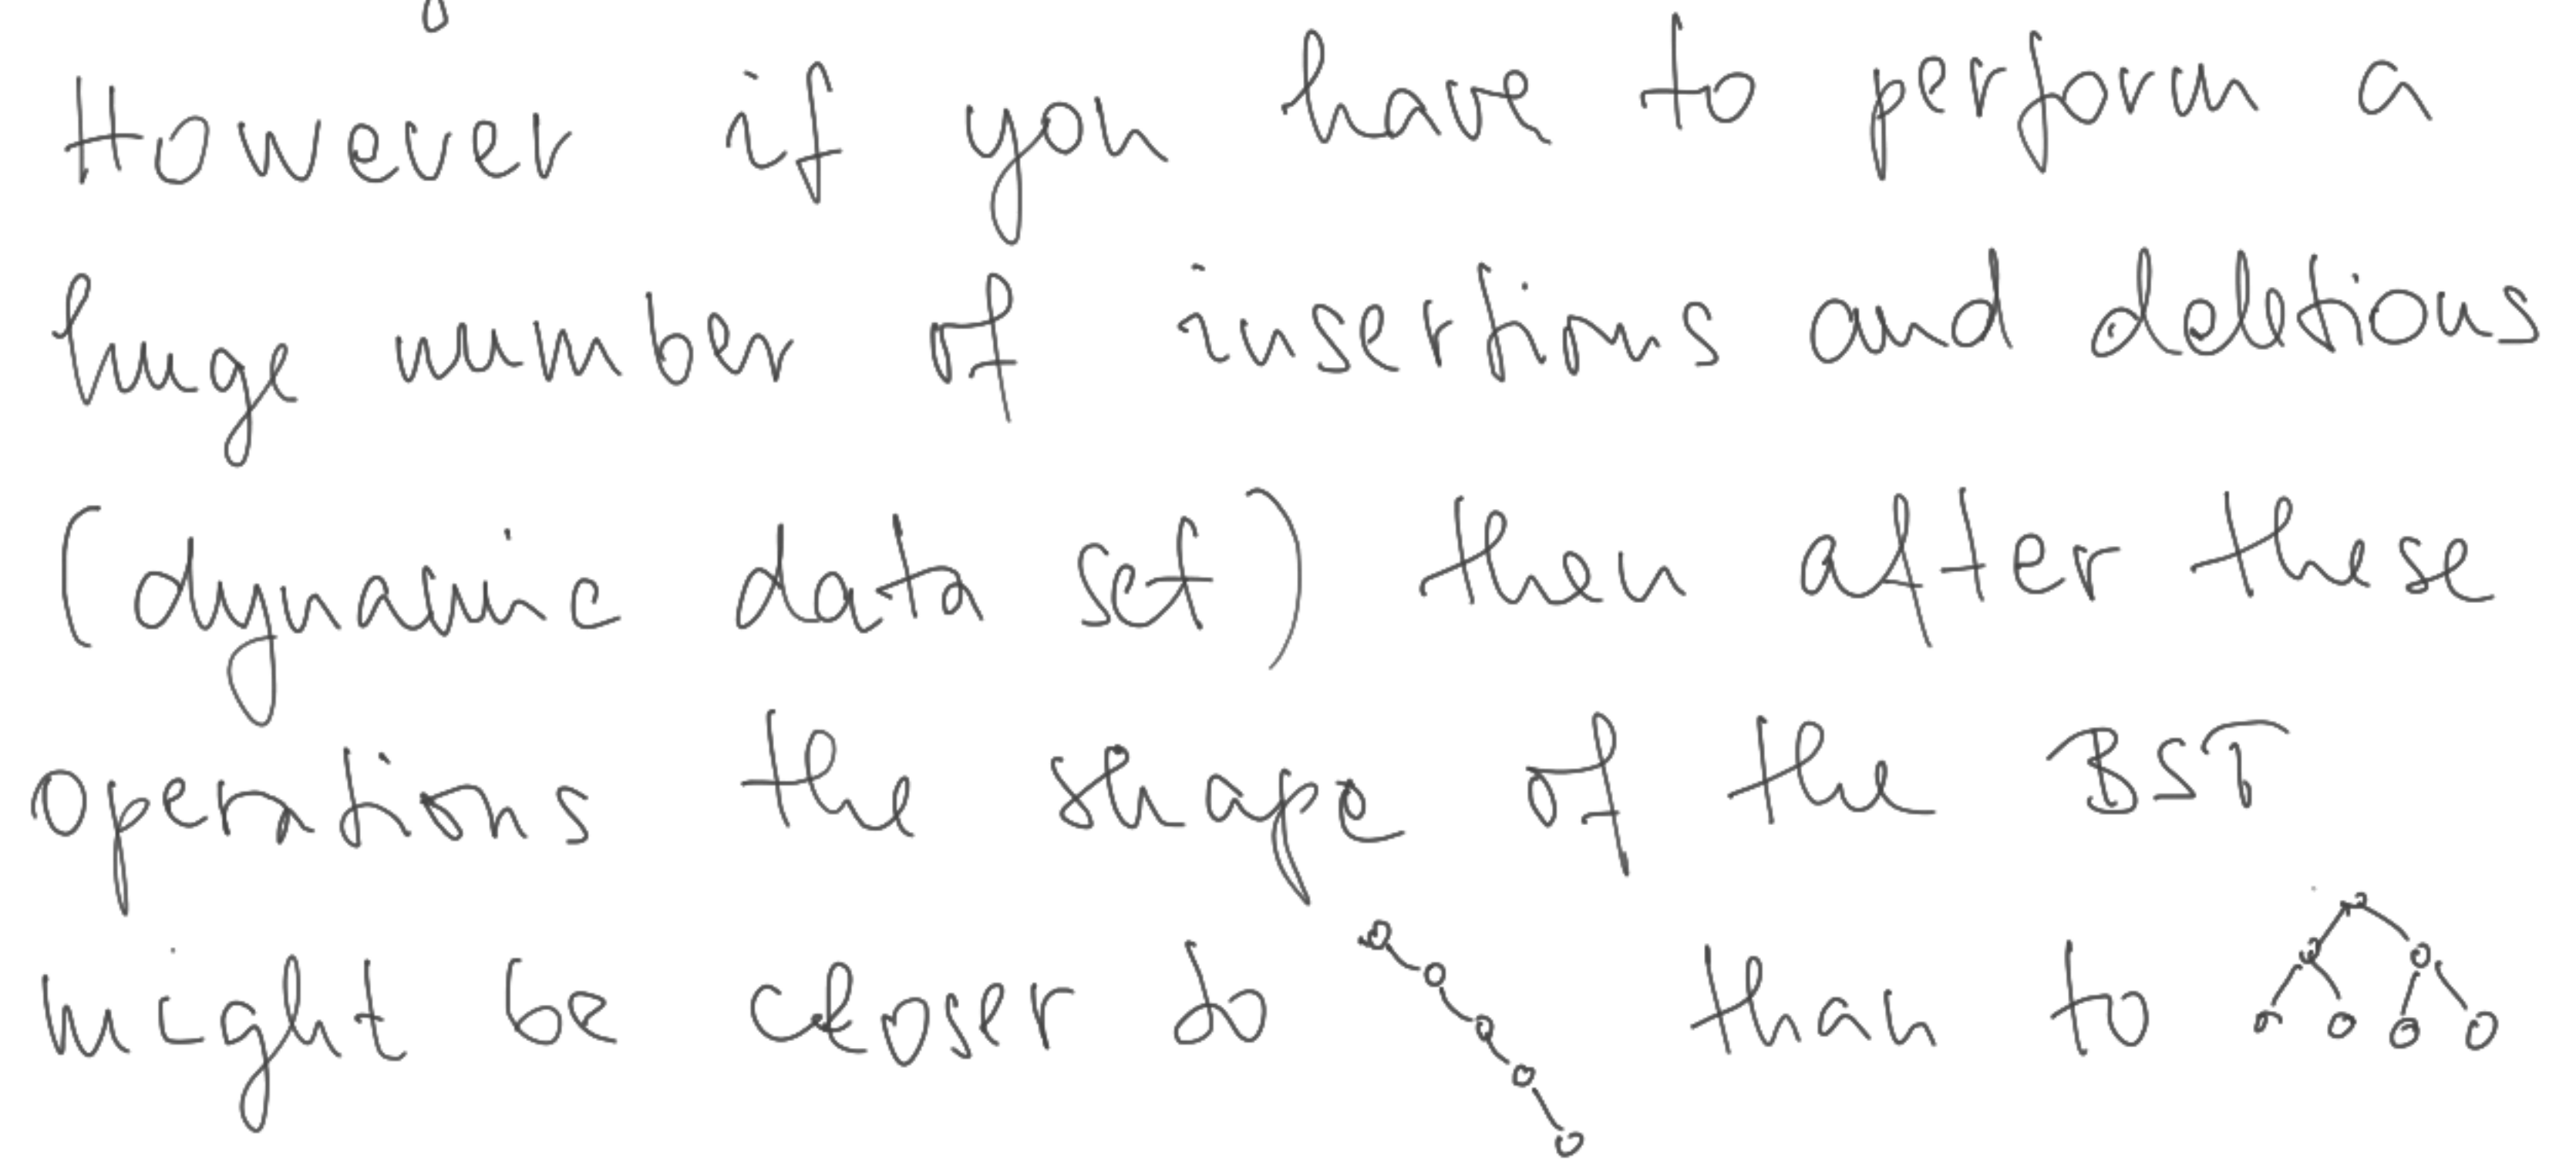 However if you have to perform a
huge number of insertions and deletions
(dynamic data set) then after these
operations the shape of the BST
might be closer to than to